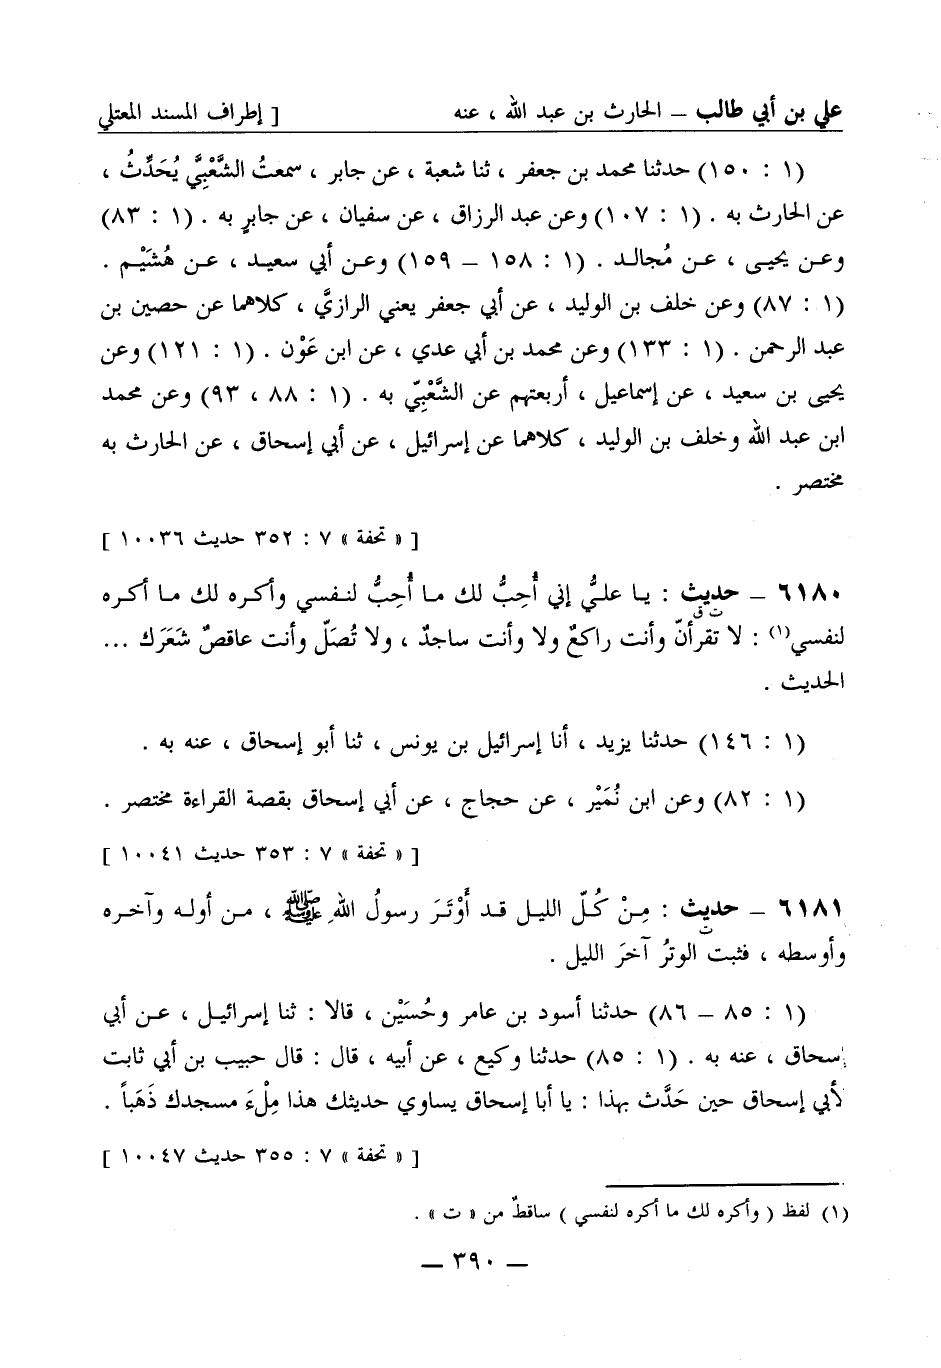 علي بن أبي طالب – الحارث بن عبد الله ، عنه [ إطراف المسند المعتلي
(١ : ١٥٠) حدثنا محمد بن جعفر ، ثنا شعبة ، عن جابر ، سمعتُ الشَّعْبِيَّ يُحَدِّثُ ،
عن الحارث به . (١ : ١٠٧) وعن عبد الرزاق ، عن سفيان ، عن جابرٍ به . (١ : ٨٣)
وعن يحيى ، عن مُجالد . (١ : ١٥٨ – ١٥٩) وعن أبي سعيد ، عن هُشَيْم .
(١ : ٨٧) وعن خلف بن الوليد ، عن أبي جعفر يعني الرازيَّ ، كلاهما عن حصين بن
عبد الرحمن . (١ : ١٣٣) وعن محمد بن أبي عدي ، عن ابن عَوْن . (١ : ١٢١) وعن
يحيى بن سعيد ، عن إسماعيل ، أربعتهم عن الشَّعْبِيّ به . (١ : ٨٨ ، ٩٣) وعن محمد
ابن عبد الله وخلف بن الوليد ، كلاهما عن إسرائيل ، عن أبي إسحاق ، عن الحارث به
مختصر .
[ « تحفة » ٧ : ٣٥٢ حديث ١٠٠٣٦ ]
٦١٨٠ – حديث : يا عليُّ إني أُحِبُّ لك ما أُحِبُّ لنفسي وأكره لك ما أكره
ت ق
لنفسي(١) : لا تقرأنّ وأنت راكعٌ ولا وأنت ساجدٌ ، ولا تُصَلّ وأنت عاقصٌ شَعَرَك ...
الحديث .
(١ : ١٤٦) حدثنا يزيد ، أنا إسرائيل بن يونس ، ثنا أبو إسحاق ، عنه به .
(١ : ٨٢) وعن ابن نُمَيْر ، عن حجاج ، عن أبي إسحاق بقصة القراءة مختصر .
[ « تحفة » ٧ : ٣٥٣ حديث ١٠٠٤١ ]
٦١٨١ – حديث : مِنْ كُلّ الليل قد أَوْتَرَ رسولُ اللهِ ﷺ ، من أوله وآخره
ت
وأوسطه ، فثبت الوترُ آخرَ الليل .
(١ : ٨٥ – ٨٦) حدثنا أسود بن عامر وحُسَيْن ، قالا : ثنا إسرائيل ، عن أبي
إسحاق ، عنه به . (١ : ٨٥) حدثنا وكيع ، عن أبيه ، قال : قال حبيب بن أبي ثابت
لأبي إسحاق حين حَدَّث بهذا : يا أبا إسحاق يساوي حديثك هذا مِلْءَ مسجدك ذَهَباً .
[ « تحفة » ٧ : ٣٥٥ حديث ١٠٠٤٧ ]
(١) لفظ ( وأكره لك ما أكره لنفسي ) ساقطٌ من « ت » .
– ٣٩٠ –